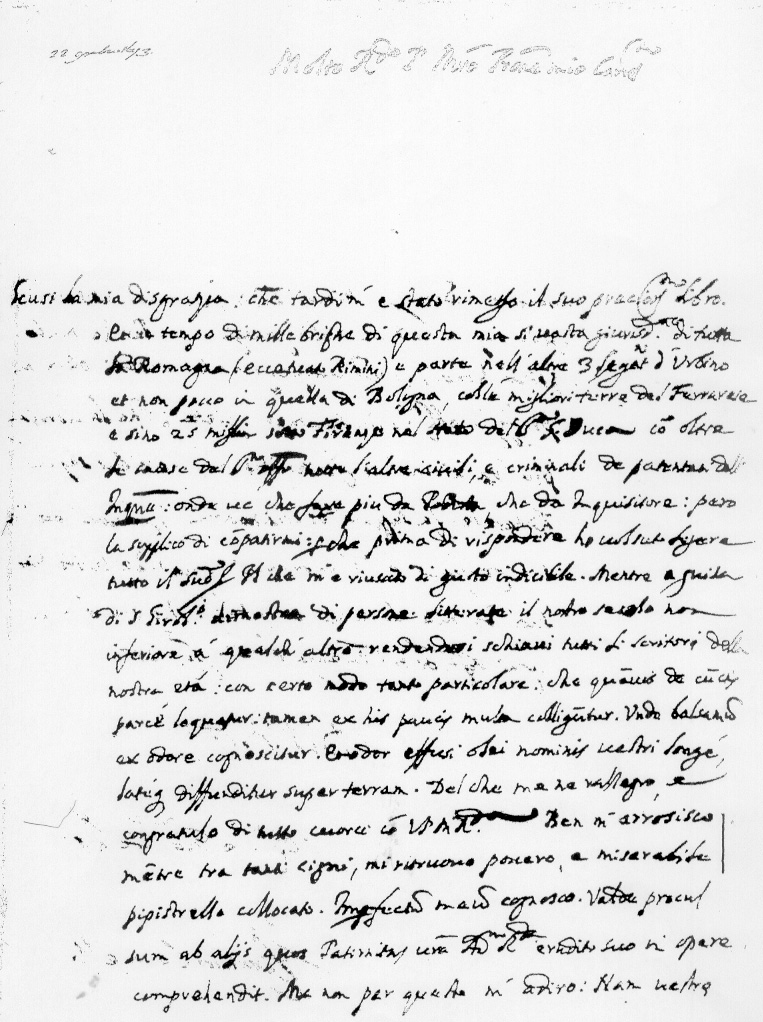 Molto Rdo P. Mro mio
Scusi la mia disgrazia: che tardi m'è stato rimesso il suo libro.
Et in tempo di mille brighe di questa mia sì vasta giurisd.ne di tutta
la Romagna (eccetuato Rimini) e parte nell'altre 3 d'Urbino
et non poco in quella di Bologna, colle migliori terre del Ferrarese
e sino 25 miglia nel stato del G. Duca cō oltre
le cause del l'altre civili, e criminali de patentati dell'
Inqne: onde che fare più da che da Inquisitore: però
la supplico di cōpatirmi: che prima di rispondere ho voluto
tutto il suo Il che m'è riuscito di gusto indicibile. Mentre a guisa
di S. Girol.o dimostra di persone litterate il nostro secolo non
inferiore à qualch' altro rendendosi schiavi tutti li scritori della
nostra età: con certo modo tanto particolare: che quāvis de cūctis
parcè loquatur: tamen ex his paucis multa colligūtur. Unde balsamū
ex odore cognoscitur. Et odor effusi olei nominis vestri longè,
latèq diffunditur super terram. Del che me ne rallegro, e
congratulo di tutto cuore cō V.P.M.Rda. Ben m'arrosisco
mētre tra tanti cigni, mi ritruovo povero, e miserabile
pipistrello collocato. Imperfectū meū cognosco. Valde procul
sum ab alijs quos Paternitas vrā Ad. Rda erudito suo in opere
comprehendit. Ma non per questo m'adiro: Nam vestra